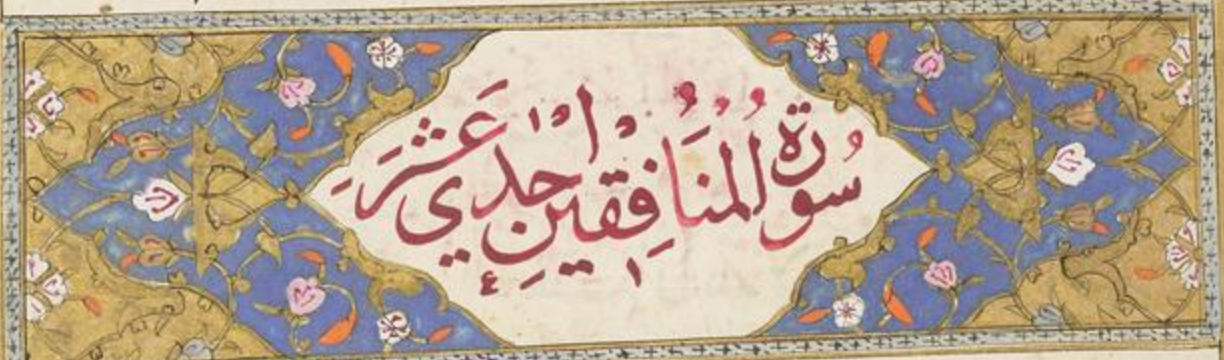 سُورَةُ الْمُنَافِقِينَ احدي عَشَرَ